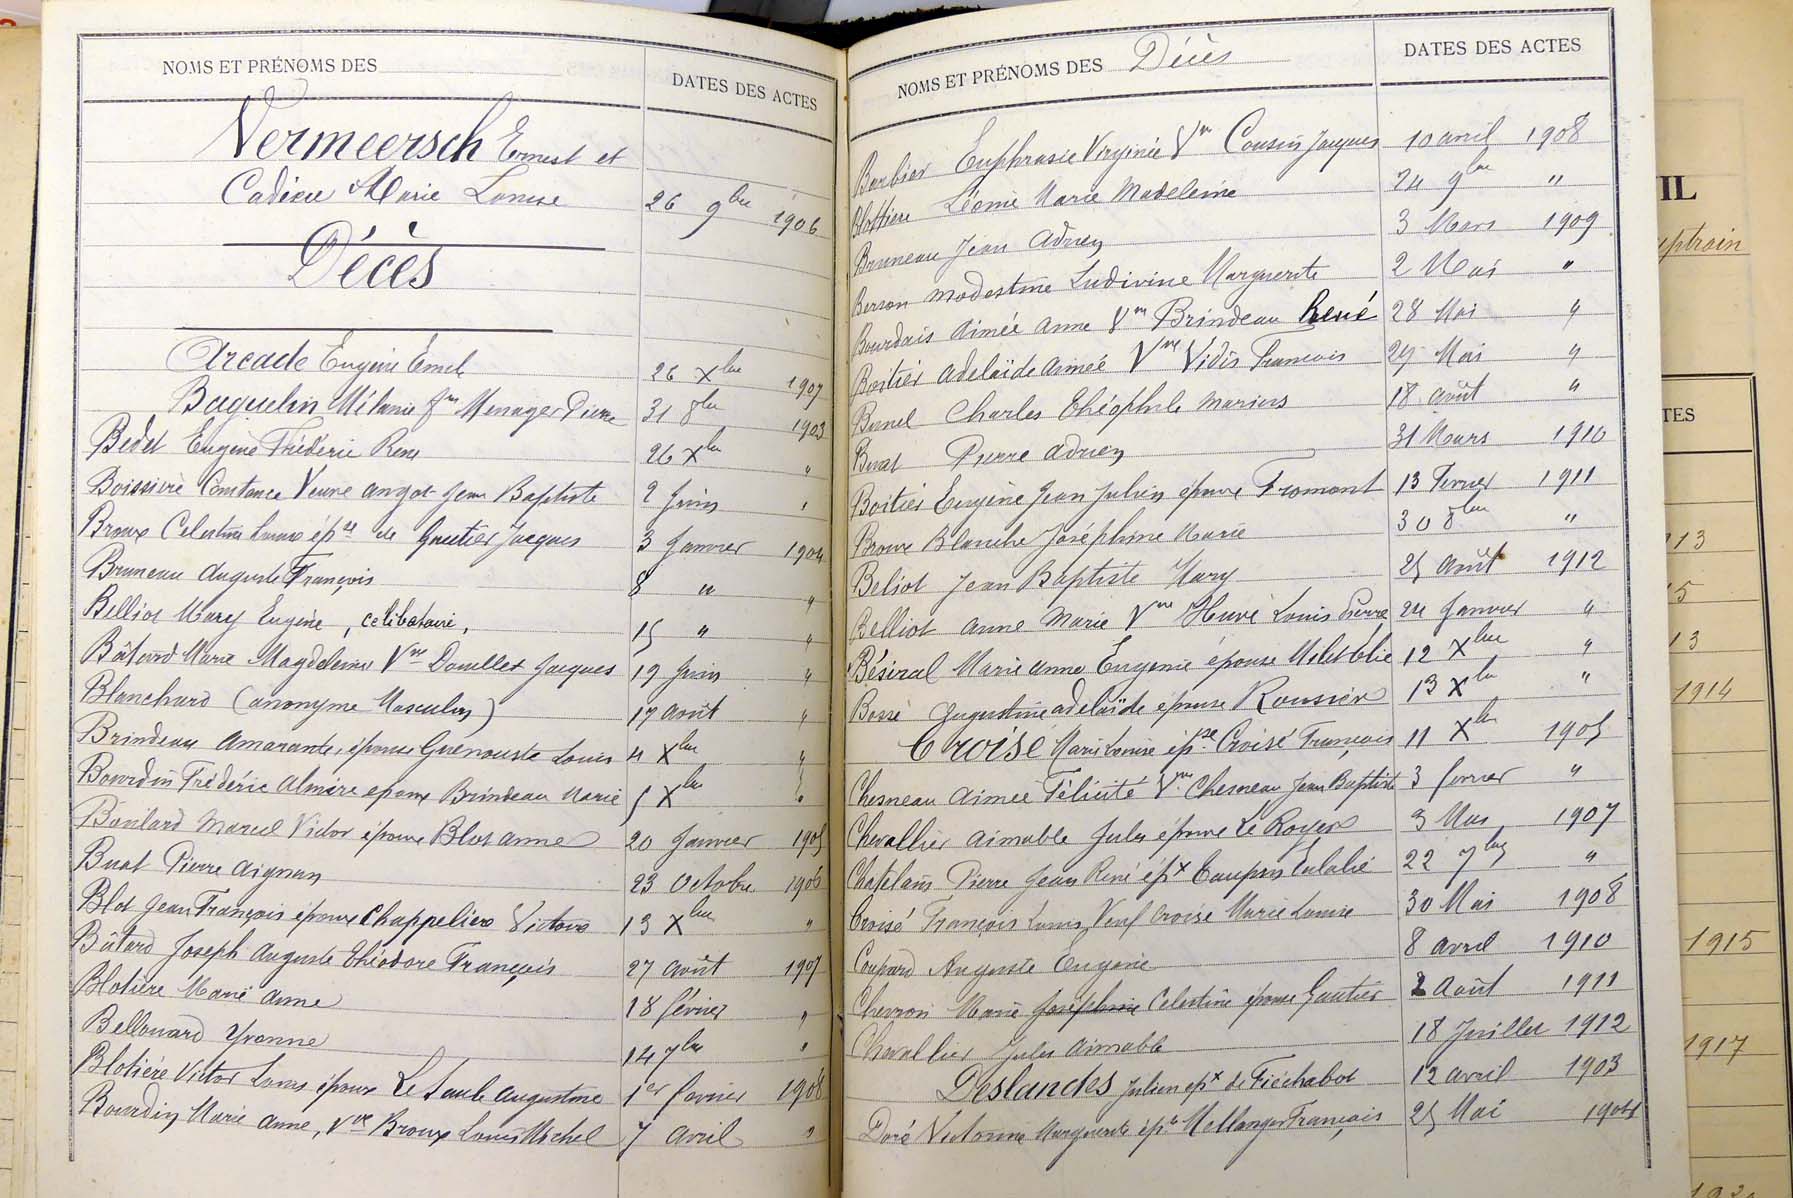 NOMS ET PRÉNOMS DES
DATES DES ACTES
Vermeersch Ernest et
Cadieu Marie Louise 26 9bre 1906
Décès
Arcade Eugène Emile 26 Xbre 1907
Baguelin Mélanie fme Menager Pierre 31 8bre 1903
Bedet Eugène Frédéric René 26 Xbre "
Boissière Constance Veuve angot Jean Baptiste 2 Juin "
Broux Celestine Louise épse de Gautier Jacques 3 Janvier 1904
Bruneau Auguste François 8 " "
Belliot Mary Eugène, celibataire, 15 " "
Bâtard Marie Magdeleine Vve Douillet Jacques 19 Juin "
Blanchard (anonyme Masculin) 17 août "
Brindeau Amarante, épouse Guenouste Louis 4 Xbre "
Bourdin Frédéric Almire époux Brindeau Marie 5 Xbre "
Boulard Marcel Victor époux Blot anne 20 Janvier 1905
Buat Pierre Aignan 23 Octobre 1906
Blot Jean François époux Chappelière Victoire 13 Xbre "
Bâtard Joseph Auguste Théodore François 27 août 1907
Blotière Marie Anne 18 février "
Bellouard Yvonne 14 7bre "
Blotière Victor Louis époux Le Saule Augustine 1er février 1908
Bourdin Marie Anne, Vve Broux Louis Michel 7 Avril "
NOMS ET PRÉNOMS DES Décès
DATES DES ACTES
Barbier Euphrasie Virginie Vve Cousin Jacques 10 avril 1908
Blottière Léonie Marie Madeleine 24 9bre "
Bruneau Jean Adrien 3 Mars 1909
Berson Modestine Ludivine Marguerite 2 Mai "
Bourdais Aimée Anne Vve Brindeau René 28 Mai "
Boitier Adelaïde Aimée Vve Vidis François 29 Mai "
Bunel Charles Théophile Marius 18 août "
Buat Pierre Adrien 31 Mars 1910
Boitier Eugène Jean Julien époux Fromont 13 Fevrier 1911
Broux Blanche Joséphine Marie 30 8bre "
Beliot Jean Baptiste Mary 25 août 1912
Belliot Anne Marie Vve Huvé Louis Pierre 24 Janvier "
Bésiral Marie Anne Eugenie épouse Milet Elie 12 Xbre "
Bossé Augustine Adelaïde épouse Roussier 13 Xbre "
Croisé Marie Louise épse Croisé François 11 Xbre 1905
Chesneau Aimee Félicité Vve Chesneau Jean Baptiste 3 fevrier "
Chevallier Aimable Jules époux Le Royer 3 Mai 1907
Chatelain Pierre Jean René épx Coupris Eulalie 22 7bre "
Croisé François Louis, Veuf Croisé Marie Louise 30 Mai 1908
Coupard Auguste Eugène 8 avril 1910
Chevron Marie Joséphine Celestine épouse Gautier 2 Août 1911
Chevallier Jules Aimable 18 Juillet 1912
Deslandes Julien épx de Fiéchabot 12 avril 1903
Doré Victorine Marguerite épse Mellanger François 25 Mai 1904
IL
ptrain
TES
13
15
13
1914
1915
1917